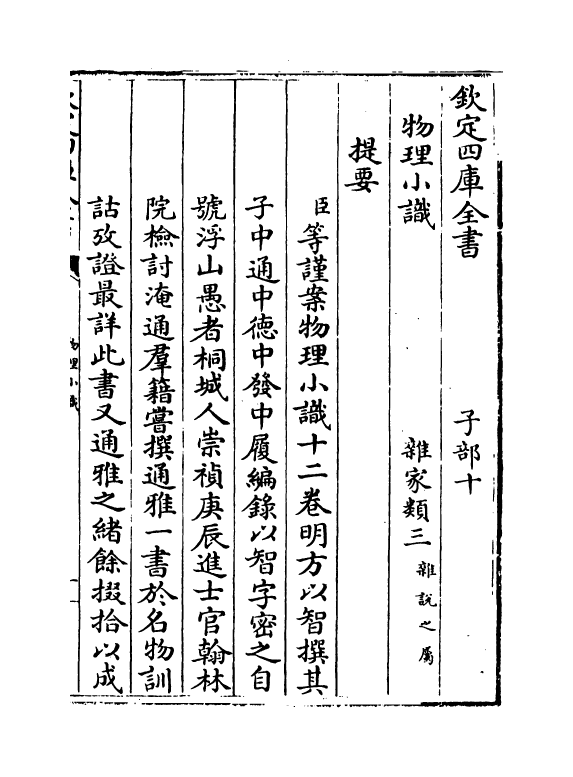 欽定四庫全書 子部十
物理小識 雜家類三 雜説之屬
提要
臣等謹案物理小識十二卷明方以智撰其
子中通中德中發中履編錄以智字密之自
號浮山愚者桐城人崇禎庚辰進士官翰林
院檢討淹通羣籍嘗撰通雅一書於名物訓
詁攷證最詳此書又通雅之緒餘掇拾以成
物理小識